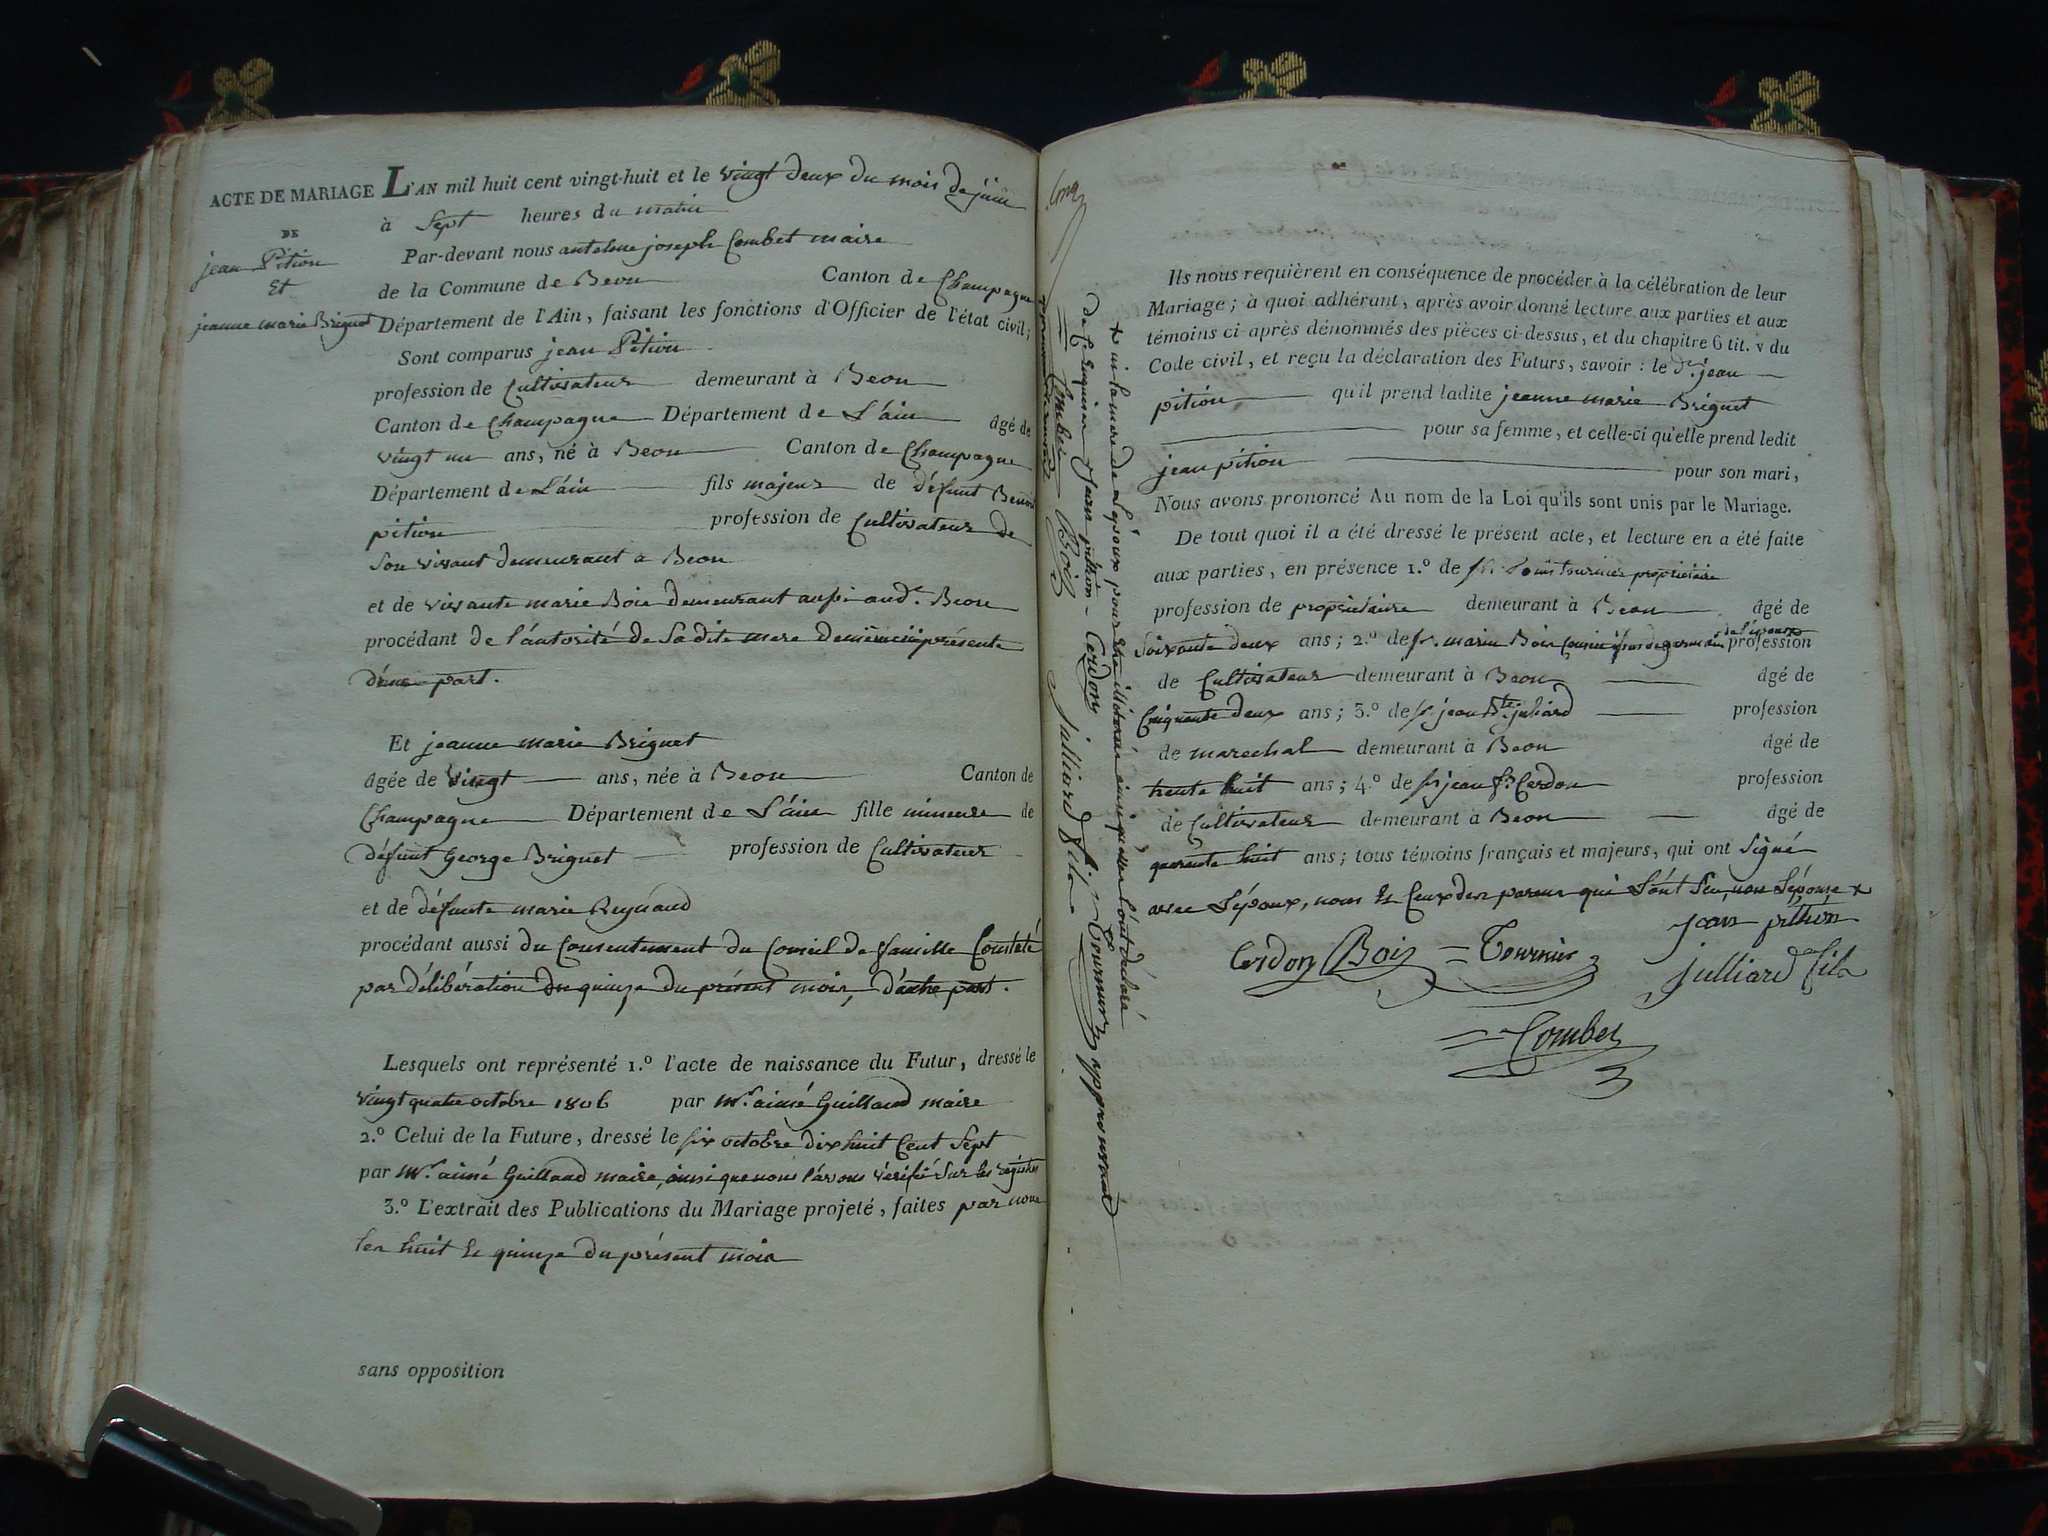 ACTE DE MARIAGE
DE
jean Pition
Et
jeanne marie Briguet
L'AN mil huit cent vingt-huit et le vingt deux du mois de juin
à Sept heures du matin
Par-devant nous antelme joseph Combet maire
de la Commune de Beon Canton de Champagne
Département de l'Ain, faisant les fonctions d'Officier de l'état civil;
Sont comparus jean Pition
profession de Cultivateur demeurant à Beon
Canton de Champagne Département de L'ain âgé de
vingt un ans, né à Beon Canton de Champagne
Département de L'ain fils majeur de défunt Benoit
pition profession de Cultivateur de
Son vivant demeurant à Beon
et de vivante marie Bois demeurant aussi aud. Beon
procédant de l'autorité de Sadite mere présente
d'une part.
Et jeanne marie Briguet
âgée de vingt ans, née à Beon Canton de
Champagne Département de L'ain fille mineure de
défunt George Briguet profession de Cultivateur
et de défunte marie Reynaud
procédant aussi du Consentement du Conseil de famille Constaté
par délibération du quinze du présent mois, d'autre part.
Lesquels ont représenté 1.º l'acte de naissance du Futur, dressé le
vingt quatre octobre 1806 par Mr. aimé Guilland maire
2.º Celui de la Future, dressé le six octobre dix huit Cent Sept
par Mr. aimé Guilland maire, ainsi que nous l'avons vérifié Sur les registres
3.º L'extrait des Publications du Mariage projeté, faites par nous
les huit & quinze du présent mois
sans opposition
Ils nous requièrent en conséquence de procéder à la célébration de leur
Mariage; à quoi adhérant, après avoir donné lecture aux parties et aux
témoins ci-après dénommés des pièces ci-dessus, et du chapitre 6 tit. v du
Code civil, et reçu la déclaration des Futurs, savoir: le d. jean
pition qu'il prend ladite jeanne marie Briguet
pour sa femme, et celle-ci qu'elle prend ledit
jean pition pour son mari,
Nous avons prononcé Au nom de la Loi qu'ils sont unis par le Mariage.
De tout quoi il a été dressé le présent acte, et lecture en a été faite
aux parties, en présence 1.º de sr. Louis tournier propriétaire
profession de propriétaire demeurant à Beon âgé de
Soixante deux ans; 2.º de sr. marin Bois Cousin de l'époux profession
de Cultivateur demeurant à Beon âgé de
Cinquante deux ans; 3.º de sr jean Bte. juliard profession
de marechal demeurant à Beon âgé de
trente huit ans; 4.º de sr jean fs. Cerdon profession
de Cultivateur demeurant à Beon âgé de
quarante huit ans; tous témoins français et majeurs, qui ont Signé
avec L'époux, nous & Ceux des parens qui L'ont Su, non L'épouse x
jean pithion
Cerdon Bois Tournier
julliard fils
Combet
x ni la mere de L'époux pour etre illiterées ainsi qu'elles l'ont déclaré
de Ce Enquises jean pithion Cerdon Tournier approuvant
Combet Bois julliard fils